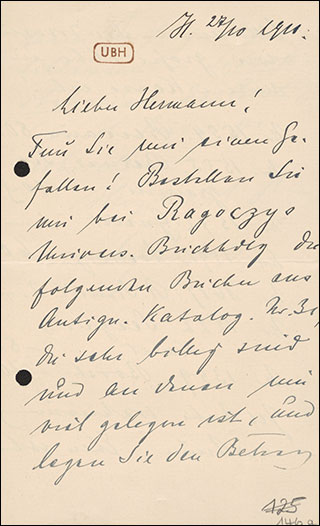 H. 27/10 1910.
UBH
Lieber Hermann!
Tun Sie mir einen Ge-
fallen! Bestellen Sie
mir bei Ragoczys
Univers. Buchhdlg die
folgenden Bücher aus
Antiqu. Katalog. Nr. 31,
die sehr billig sind
und an denen mir
viel gelegen ist, und
legen Sie den Betrag
125
146a